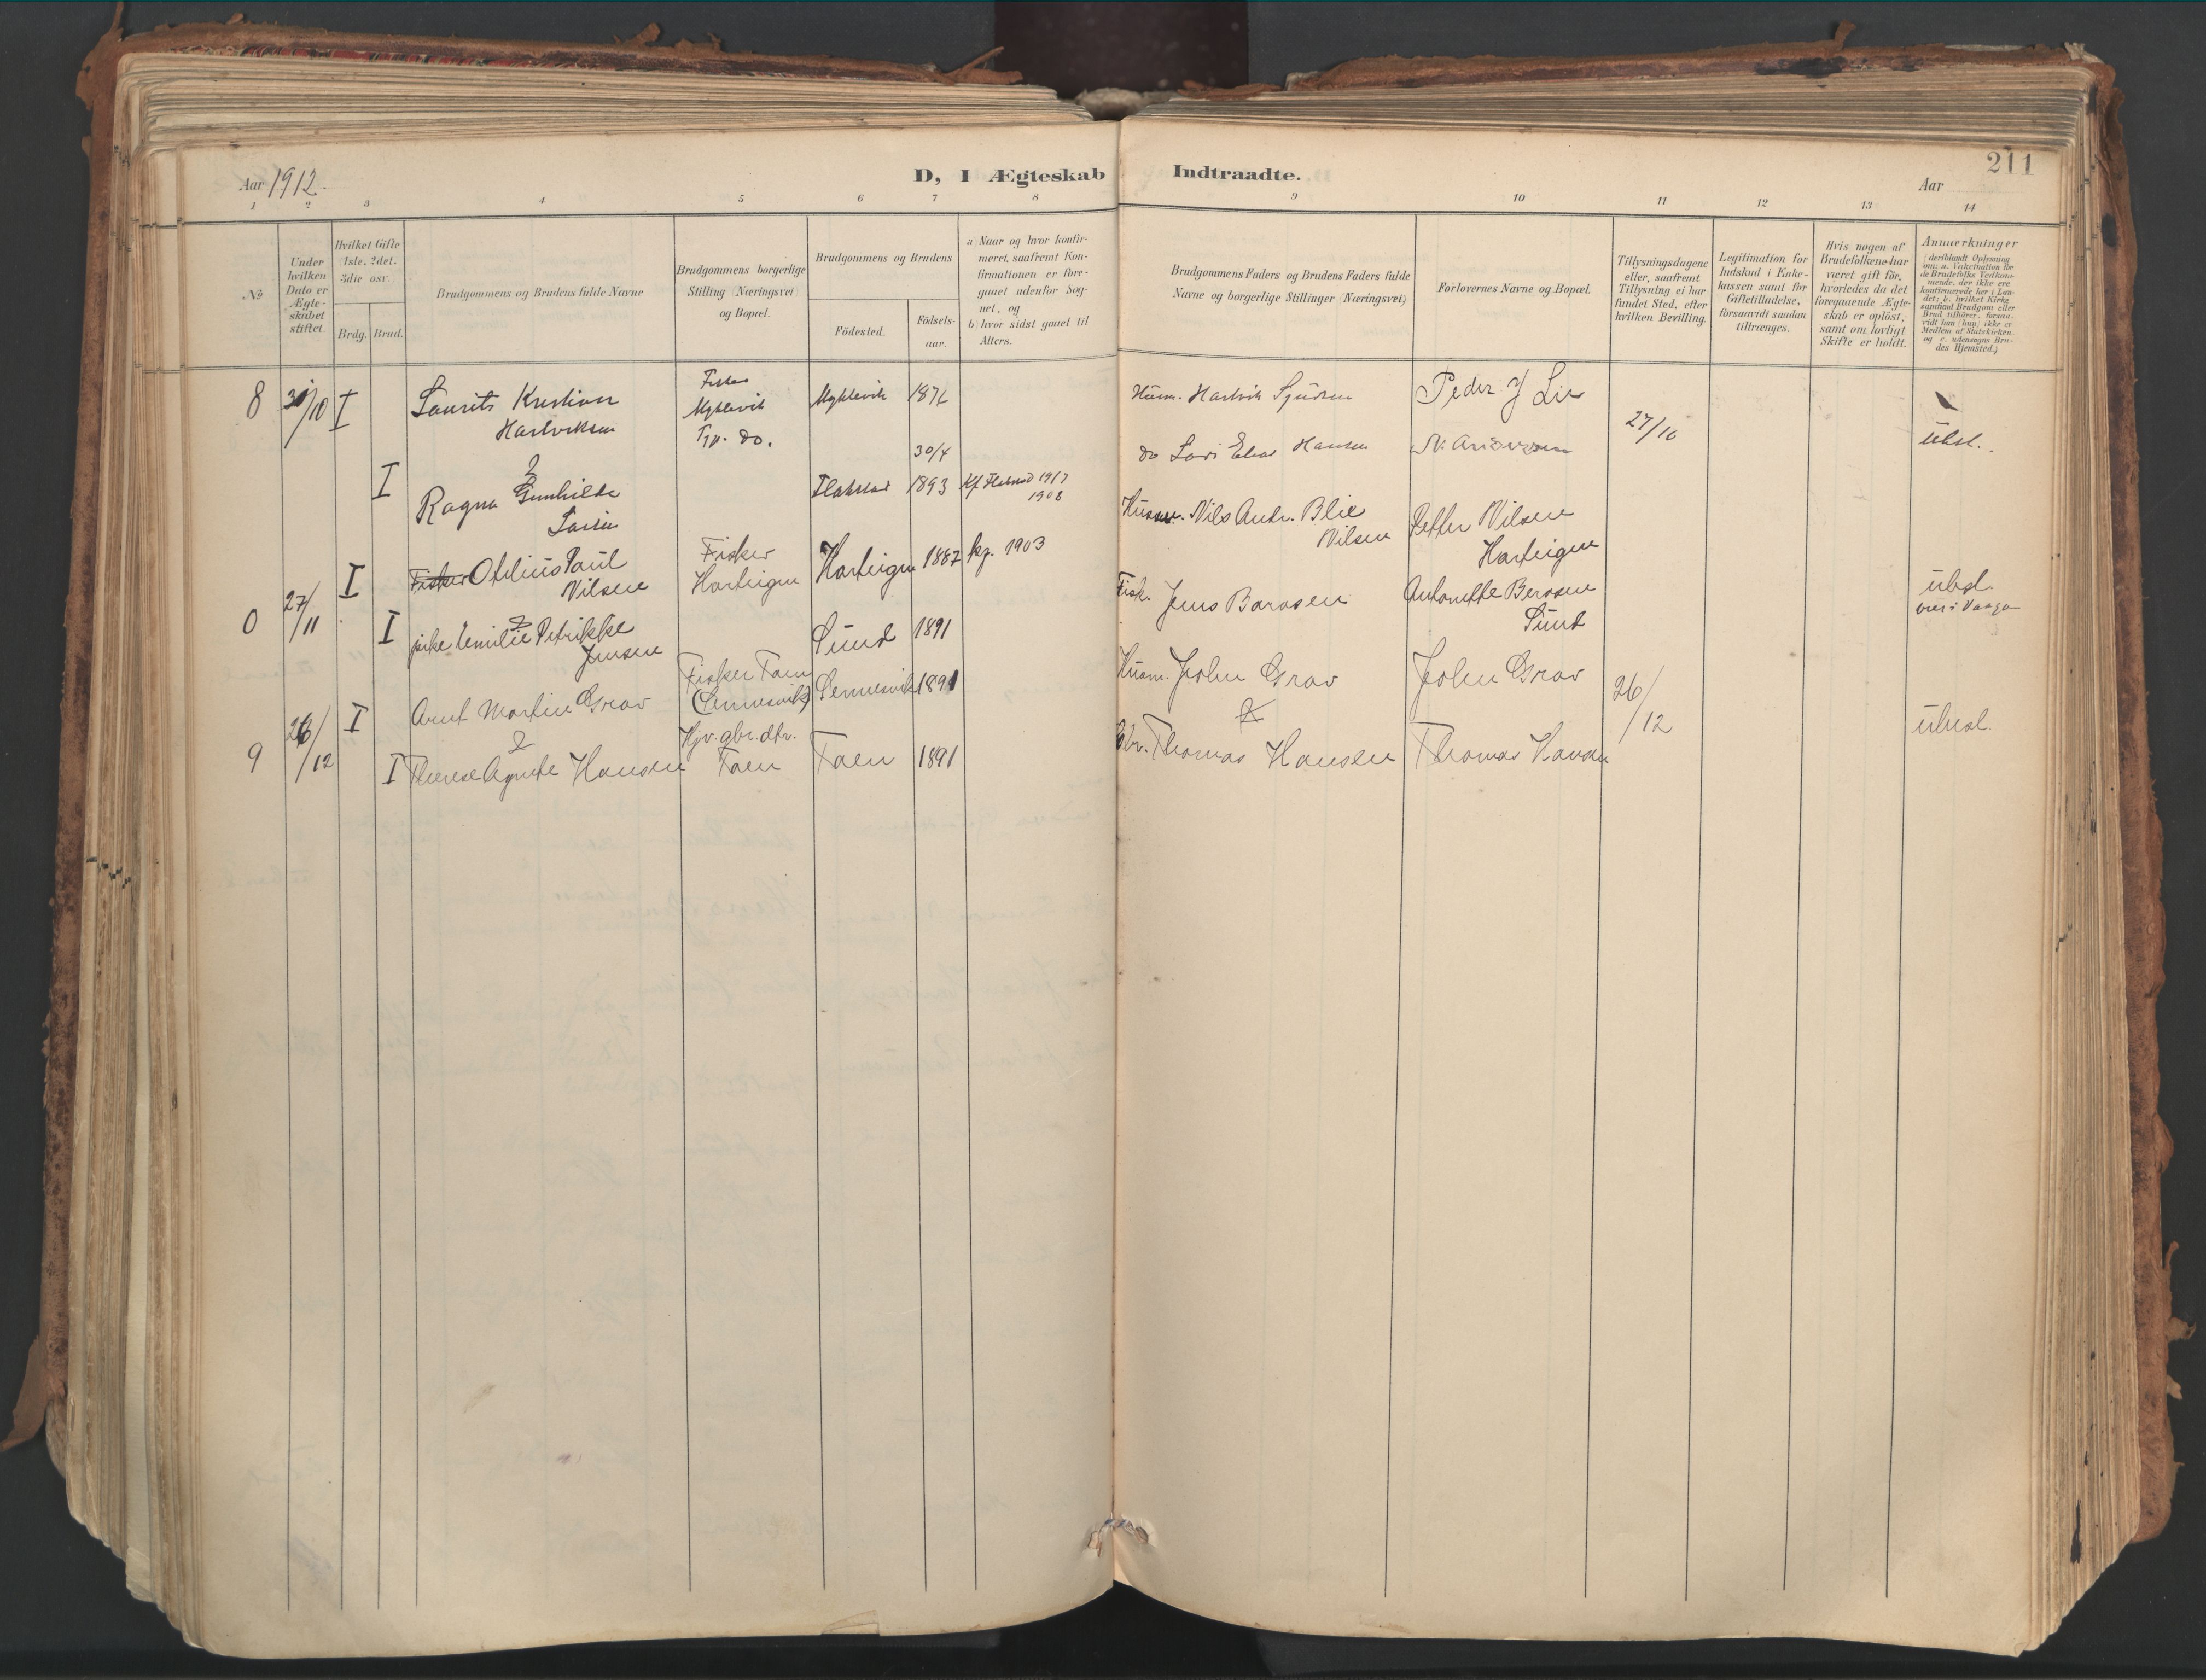 Aar 1912.
D, I Ægteskab Indtraadte.
Aar
211
1 2 3 4 5 6 7 8 9 10 11 12 13 14
№
Under
hvilken
Dato er
Ægte-
skabet
stiftet
Hvilket Gifte
1ste, 2det,
3die osv.
Brdg. Brud.
Brudgommens og Brudens fulde Navne
Brudgommens borgerlige
Stilling (Næringsvei)
og Bopæl.
Brudgommens og Brudens
Födested.
Födsels-
aar.
a) Naar og hvor konfir-
meret, saafremt Kon-
firmationen er fore-
gaaet udenfor Sog-
net, og
b) hvor sidst gaaet til
Alters.
Brudgommens Faders og Brudens Faders fulde
Navne og borgerlige Stillinger (Næringsvei)
Forlovernes Navne og Bopæl.
Tillysningsdagene
eller, saafremt
Tillysning ei har
fundet Sted, efter
hvilken Bevilling.
Legitimation for
Indskud i Enke-
kassen samt for
Giftetilladelse,
forsaavidt saadan
tiltrænges.
Hvis nogen af
Brudefolkene har
været gift för,
hvorledes da det
foregaaende Ægte-
skab er oplöst,
samt om lovligt
Skifte er holdt.
Anmerkninger
(deriblandt Oplysning
om: a. Vakcination for
de Brudefolks Vedkom-
mende, der ikke ere
konfirmerede her i Lan-
det; b. hvilket Kirke-
samfund Brudgom eller
Brud tilhörer, forsaa-
vidt han (hun) ikke er
Medlem af Statskirken,
og c. udensogns Bru-
des Hjemsted.)
8 30/10 I Laurits Kristian
Hartviksen
Fisker
Myklevik
Myklevik
Husm. Hartvik Sjursen
Peder J Lie
27/10
ubesl.
&
I Ragna Gunhilde
Larsen
30/4
Flakstad 1893 Kf. Flakstad
1908
do Lars Elias Hansen
27/11 I Fisker Otelius Paul
Nilsen
Fisker
Hartvigen
Hartvigen 1887 1903
Husm. Nils Andr. Blie
Nilsen
Petter Nilsen
Hartvigen
0
&
I pike Emilie Petrikke
Jensen
Sund 1891
Fisk. Jens
Antonette
Sund
ubesl.
26/12 I Arnt Martin Grav
Fisker Taen
(Sennesvik)
Sennesvik 1891
Husm. John Grav
John Grav
26/12
ubesl.
9
&
I Therese Agnethe Hansen
Hjv. gbr. dtr.
Taen
Taen 1891
&
Gbr. Thomas Hansen
Thomas Hansen